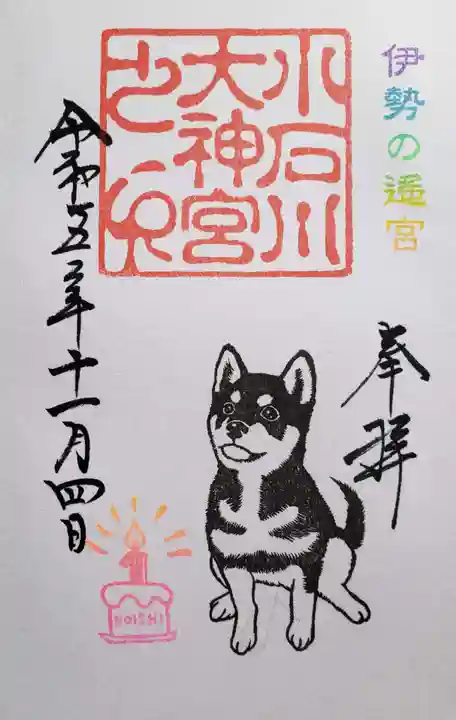 伊勢の遥宮
奉拝
小石川
大神宮
之印
令和五年十一月四日
KOISHI